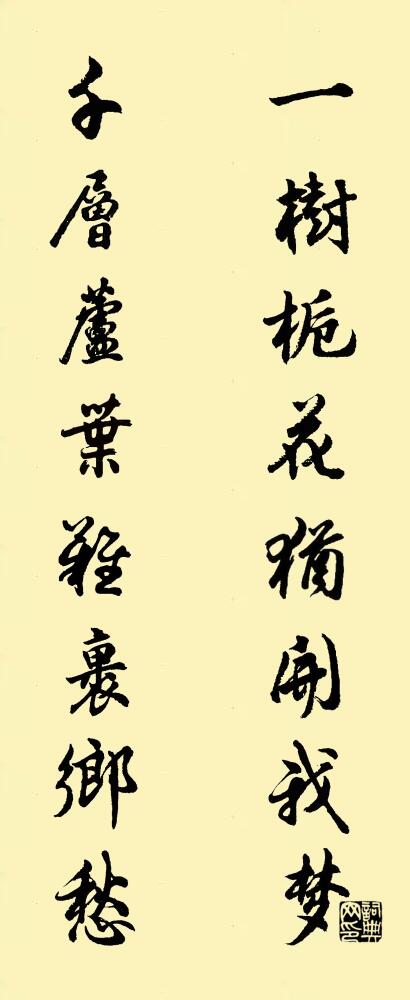 一樹栀花猶開我梦
千層蘆葉難裹鄉愁
詞典网印